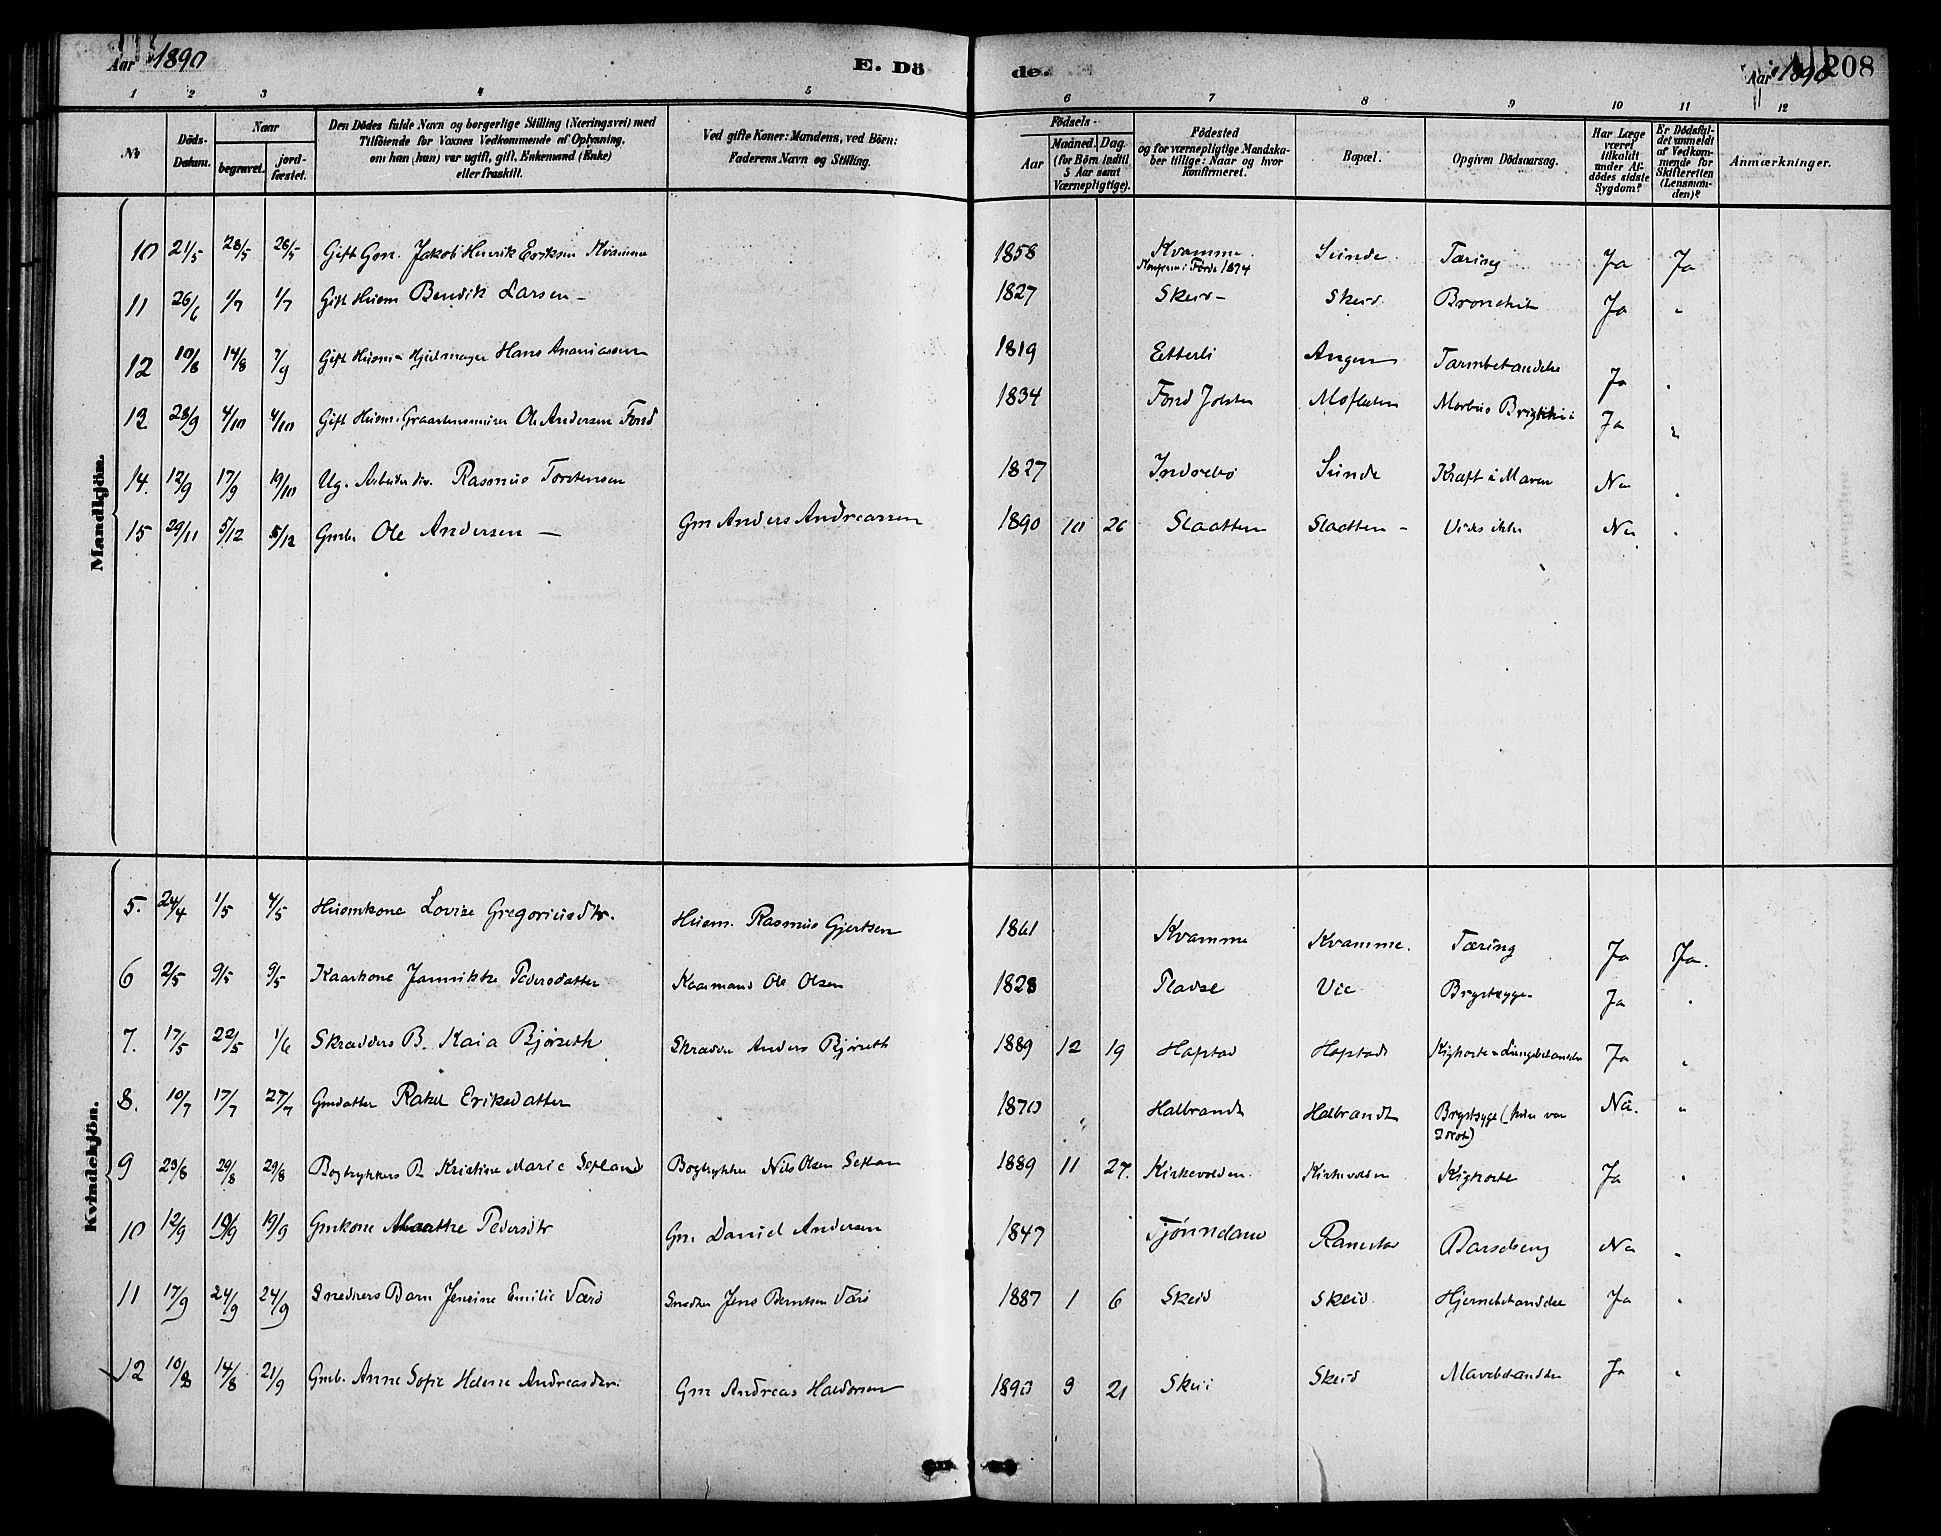 Aar 1890
E. Dö de.
Aar 1890
208
1 2 3 4 5 6 7 8 9 10 11 12
No
Döds-Datum.
Naar
begravet.
jord-fæstet.
Den Dödes fulde Navn og borgerlige Stilling (Næringsvei) med
Tilföiende for Voxnes Vedkommende af Oplysning,
om han (hun) var ugift, gift, Enkemand (Enke)
eller fraskilt.
Ved gifte Koner: Mandens, ved Börn:
Faderens Navn og Stilling.
Födsels-
Aar
Maaned. Dag
(for Börn indtil
5 Aar samt
Værnepligtige).
Födested
og for værnepligtige Mandska-
ber tillige: Naar og hvor
konfirmeret.
Bopæl.
Opgiven Dödsaarsag.
Har Læge
været
tilkaldt
under Af-
dödes sidste
Sygdom?
Er Dödsfal-
det anmeldt
af Vedkom-
mende for
Skifteretten
(Lensman-
den)?
Anmærkninger.
Mandkjön.
10 21/5 28/5 26/5 Gift Gm. Jakob Henrik Eriksen Kvamme 1858 Kvamme Sunde Tæring Ja Ja
Konferm i Förde 1874
11 26/6 1/7 1/7 Gift Husm Bendik Larsen – 1827 Skeid – Skeid Bronchit Ja "
12 10/8 14/8 7/9 Gift Husm Hjulmager Hans Ananiassen 1819 Etterli Angen Tarmbetændelse Ja "
13 28/9 4/10 4/10 Gift Husm. Ole Andersen Fond 1834 Fond Jolster Moflaten Morbus Brightii Ja "
14. 12/9 17/9 19/10 Ug. Arbeider Rasmus Torstensen 1827 Indrebö Sunde Kræft i Maven Nei "
15 29/11 5/12 5/12 Gmb. Ole Andersen – Gm Anders Andreassen 1890 10 26 Slaatten Slaatten – Vides ikke Nei "
Kvindekjön.
5. 24/4 1/5 4/5 Husmkone Lovise Gregoriusdtr. Husm. Rasmus Gjertsen 1861 Kvamme Kvamme. Tæring Ja Ja.
6 2/5 9/5 9/5 Kaarkone Jannikke Pedersdatter Kaarmand Ole Olsen 1828 Fladse Vie Brystsyge Ja "
7. 17/5 22/5 1/6 Skrædders B. Kaia Bjørseth Skrædder Anders Bjørseth 1889 12 19 Hafstad Hafstad Kighoste Lungebetændelse Ja "
8. 10/7 17/7 27/7 Gmdatter Rakel Eriksdatter 1870 " Halbrandt Halbrandt Brystsyge (hun var Idiot) Nei. "
9 23/8 29/8 29/8 Bogtrykkers B Kristine Marie Sefland Bogtrykker Nils Olsen 1889 11 27. Kirkevolden Kirkevolden Kighoste Ja "
10 12/9 19/9 19/9 Gmkone Pedersdtr Gm. Daniel Andersen 1847 Tjønndane Ramstad Barselseng Nei "
11 17/9 24/9 24/9 Snedkers Barn Jensine Emilie Værö Snedker Jens Berntsen Værö 1887 1 6 Skeid Skeid Hjernebetændelse Ja "
12 10/8 14/8 21/9 Gmb. Anne Sofie Helene Andreasdtr. Gm Andreas Haldorsen 1890 9 21 Skei Skeid Mavebetændelse Ja "